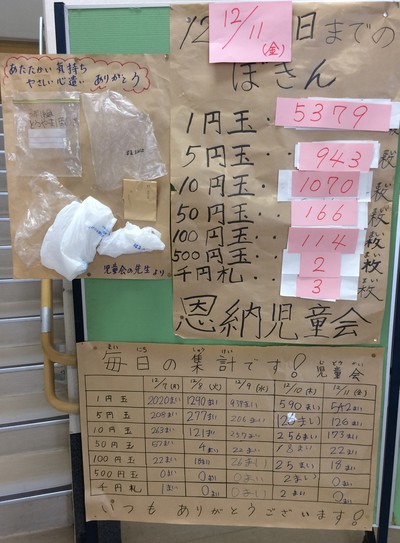 あたたかい気持ち
やさしい心遣い ありがとう
児童会の先生より
12/11
(金)
日までの
ぼきん
1円玉・・5379枚
5円玉・・943枚
10円玉・・1070枚
50円玉・・166枚
100円玉・・114枚
500円玉・・2枚
千円札・・3枚
恩納児童会
毎日の集計です! 児童会
12/7(月) 12/8(火) 12/9(水) 12/10(木) 12/11(金)
1円玉 2020まい 1290まい 590まい 542まい
5円玉 277まい 206まい 126まい
10円玉 263まい 121まい 256まい 173まい
50円玉 4まい 22まい 18まい 22まい
100円玉 22まい 26まい 25まい 18まい
500円玉 0まい 0まい 0まい 2まい 0まい
千円札 1まい 0まい 0まい 2まい 0まい
いつもありがとうございます!